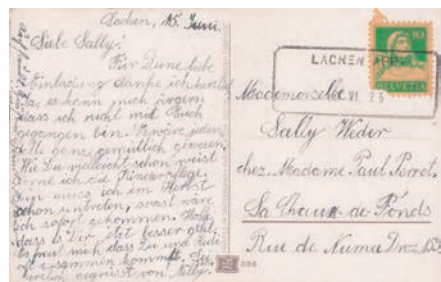 Lachen, 15. Juni.
Liebe Sally!
Für Deine liebe
Einladung danke ich herzlich
Ja, es kann mich ärgern
dass ich nicht mit Euch
gegangen bin. wäre jeden
gemütlich gewesen.
Wie Du vielleicht schon weist
ich die
muss ich im Herbst
schon eintreten, sonst wäre
ich sofort gekommen.
dass es Dir jetzt besser geht.
Es freut mich dass Du und Heidi
zusammen kommt.
herzlich gegrüsst von Nelly.
10
HELVETIA
LACHEN APP.
VI. 25
Mademoiselle
Sally Weder
chez. Madame Paul Perrot.
La Chaux-de-Fonds
Rue de Numa Droz
286